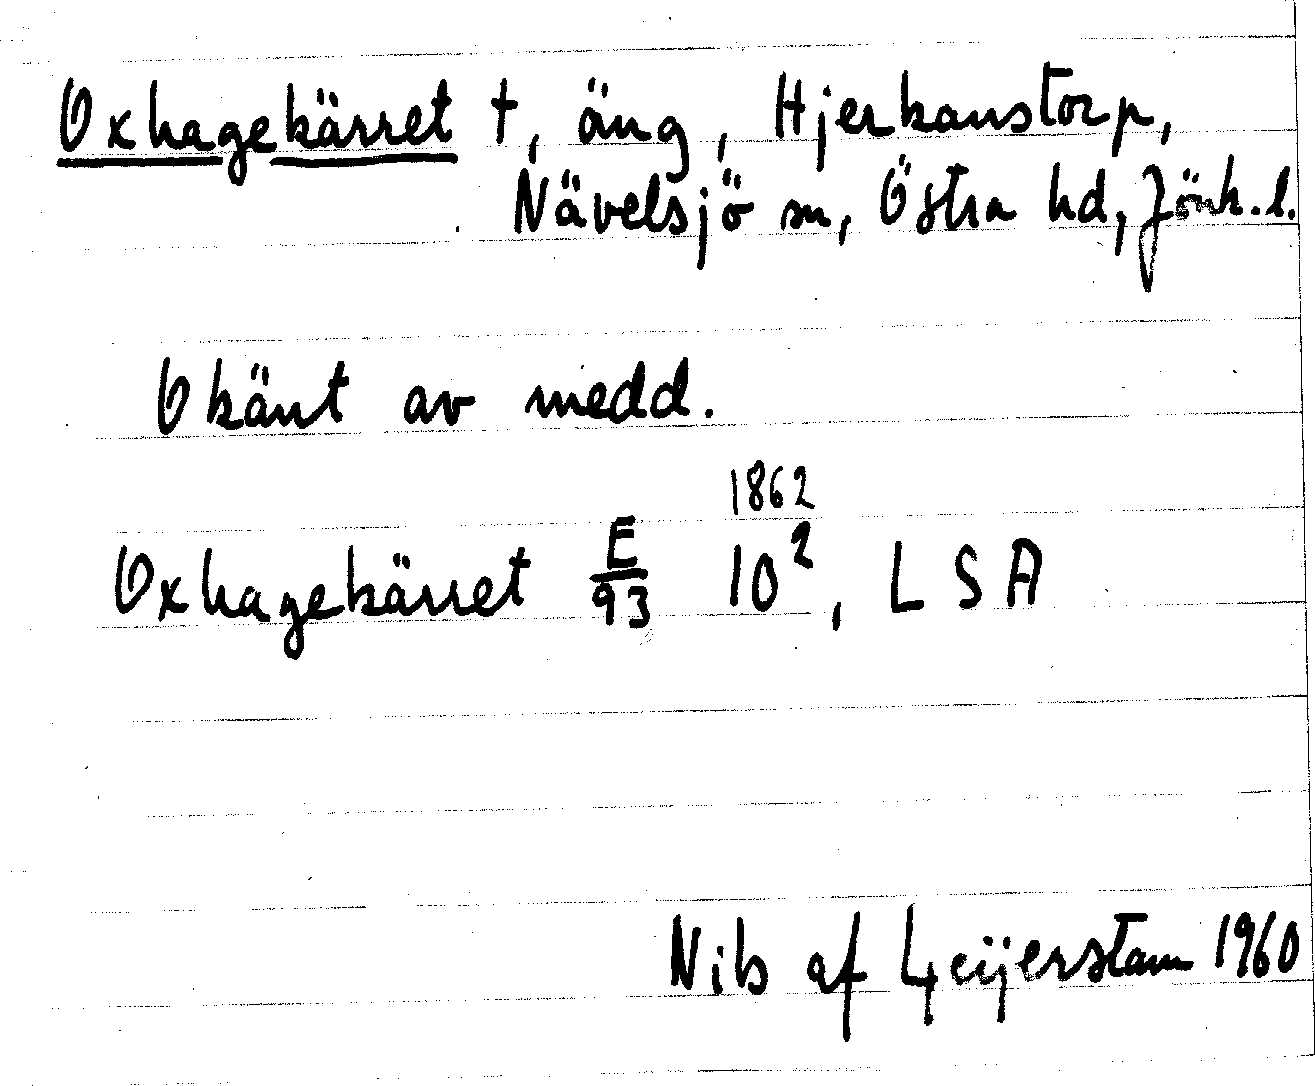 Oxhagekärret †, äng, Hjerkanstorp,
Nävelsjö sn, Östra hd, Jönk. l.
Okänt av medd.
1862
Oxhagekärret E/93 10², LSA
Nils af Geijerstam 1960